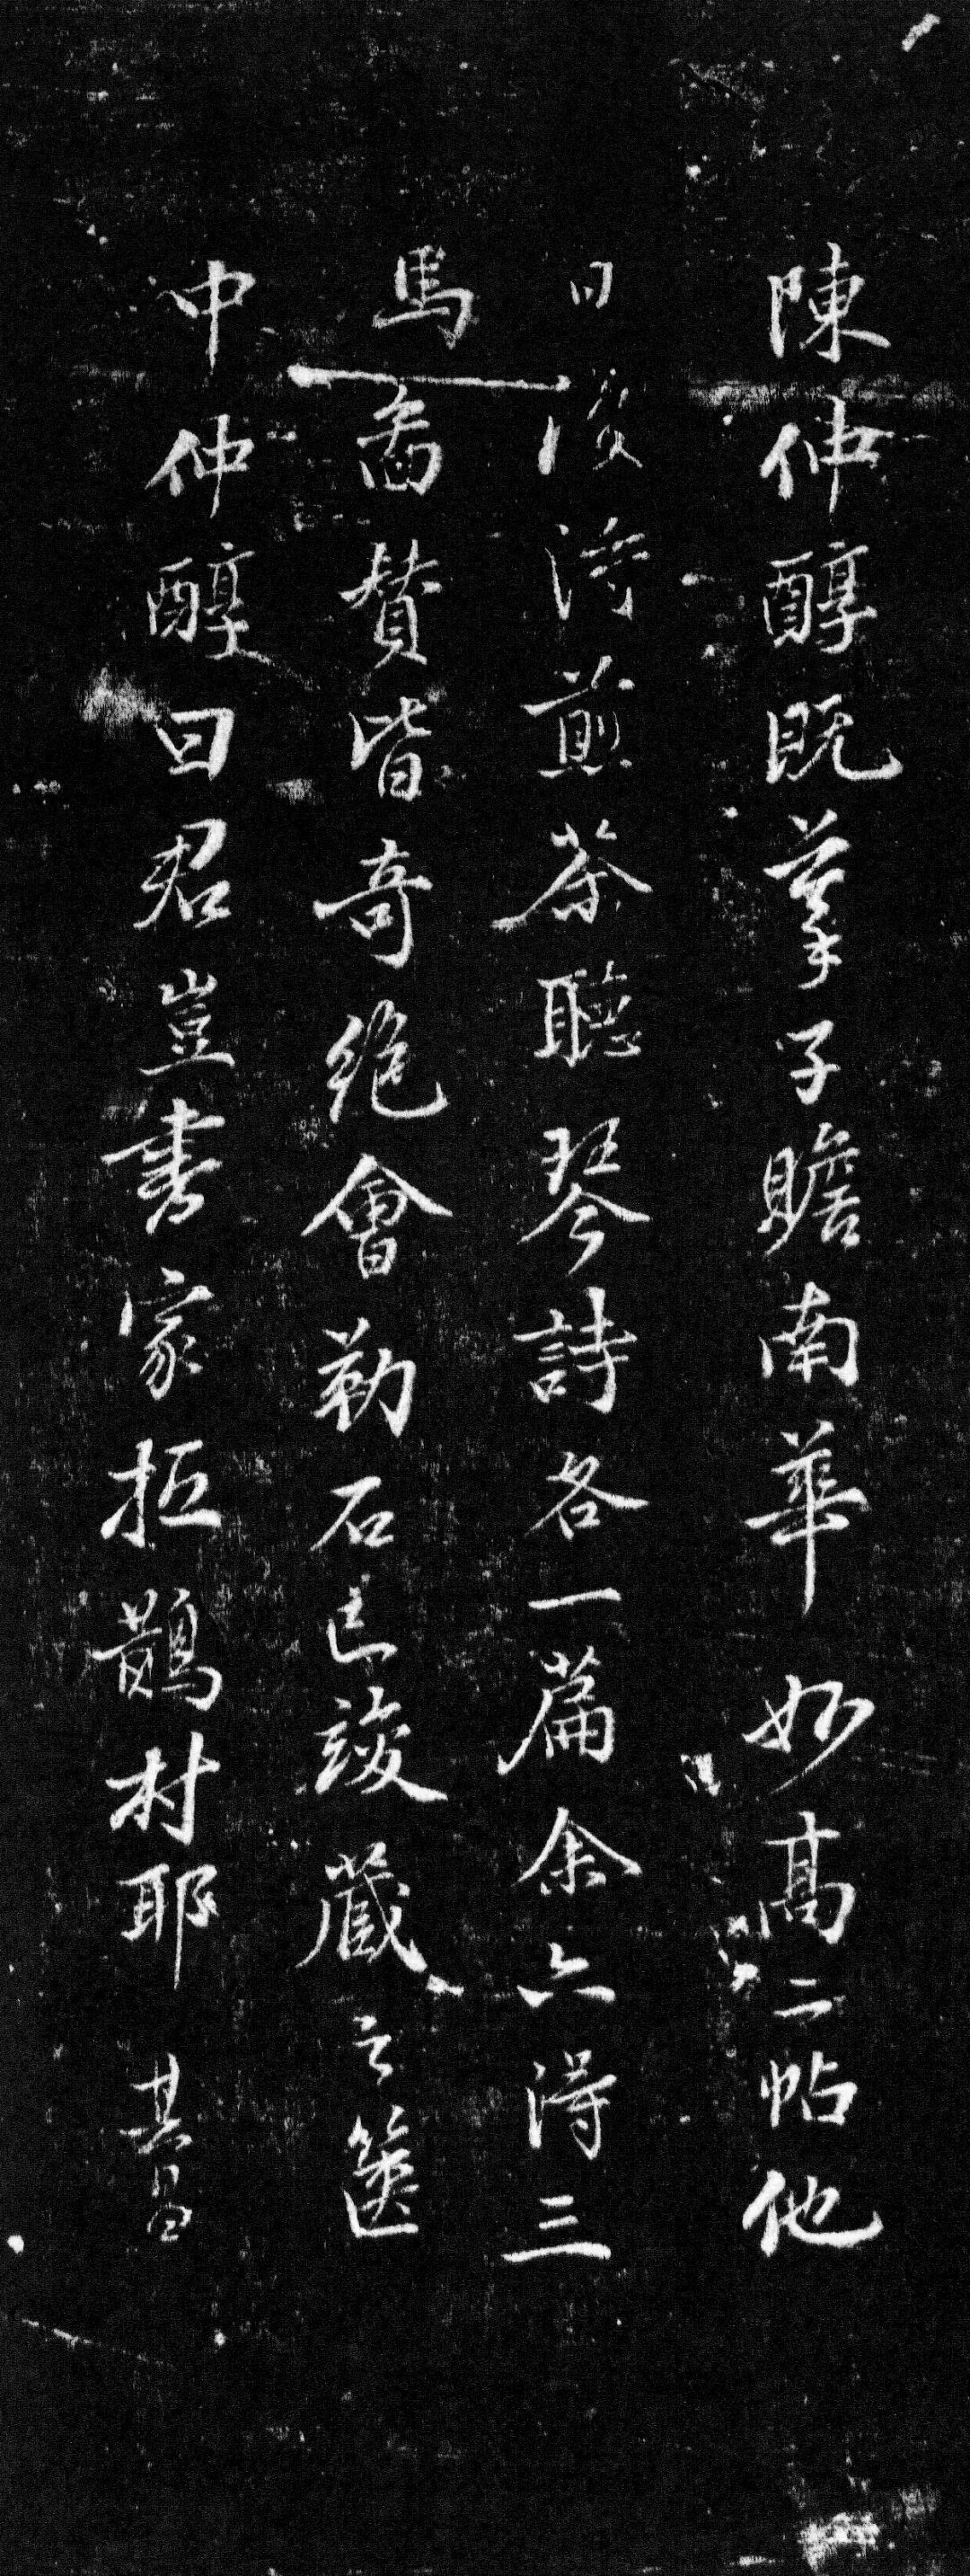 陳仲醇既摹子瞻南華妙高二帖他
日復得煎茶聽琴詩各一篇余亦得三
馬圖贊皆奇絕會勒石已竣藏之篋
中仲醇曰君豈書家抵鵲村耶其昌